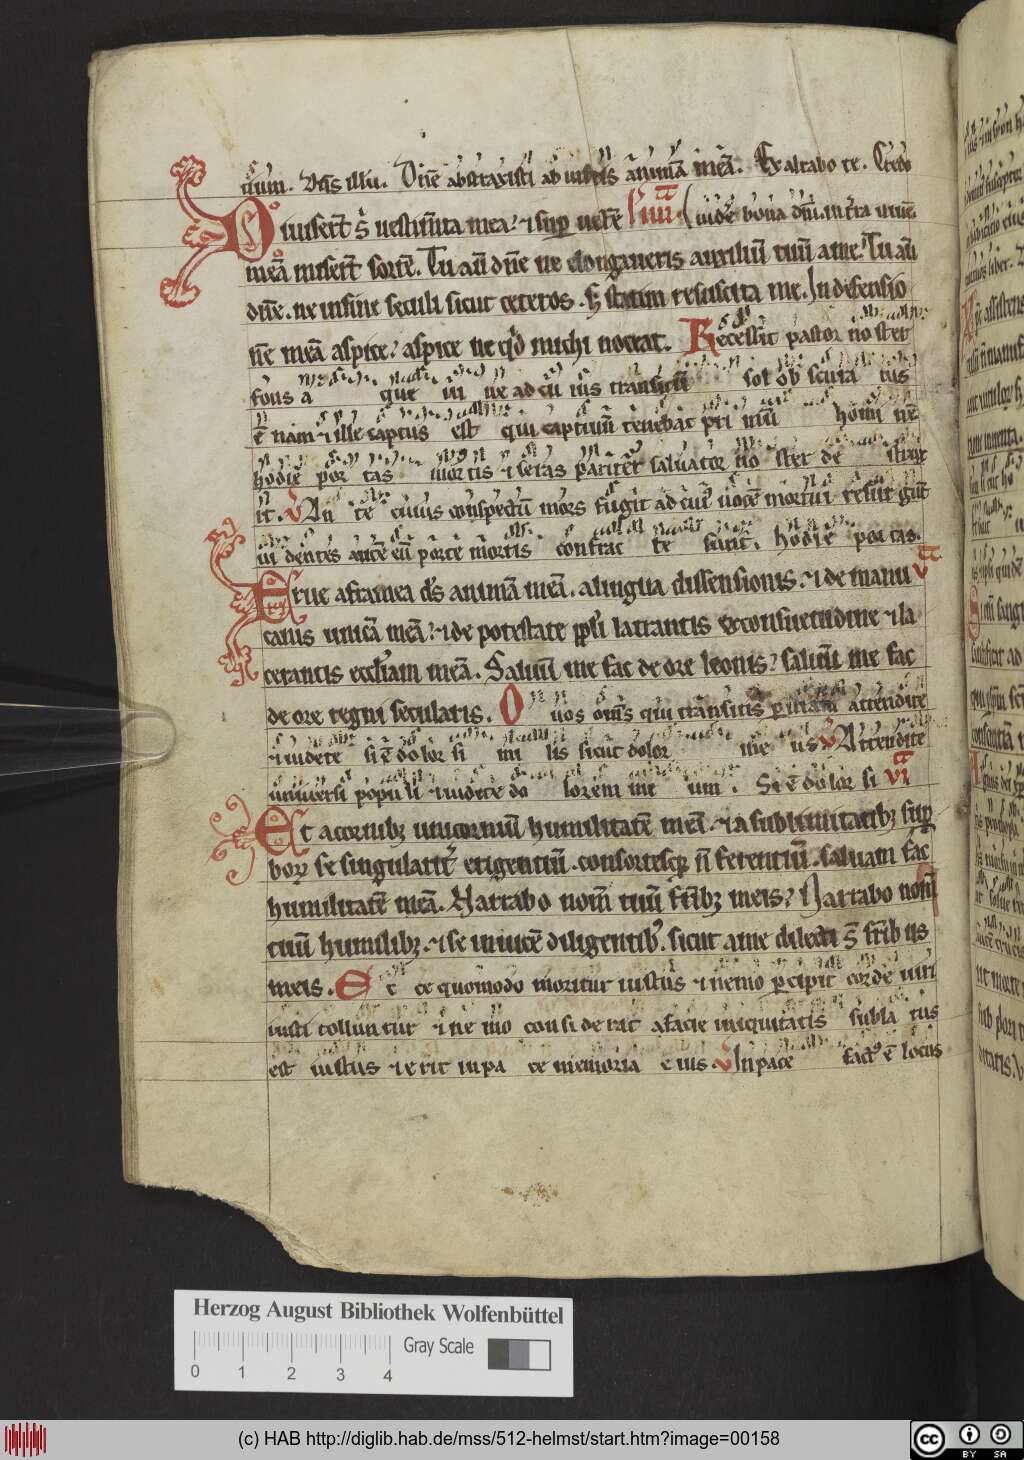 uum. V̄s illu. Dn̄e abstraxisti ab inferis animā meā. Exaltabo te. Credo
Diuiserūt s͛ uestim̄ta mea. ⁊ sup ueste iiii uide bona dn̄i. in tr̄a uiue.
meā miserūt sortē. Tu aū dn̄e ne elongaueris auxiliū tuū a me. Tu aū
dn̄e. ne in fine seculi sicut ceteros. s; statim resuscita me. In defensio
nē meā aspice. aspice ne qd michi noceat. Recessit pastor noster
fons a que ui ue ad cui ius transitū sol obscura tus
ē nam ⁊ ille captus est qui captiuū tenebat pri mū homi nē
hodie por tas mortis ⁊ seras pariter saluator no ster de strux
it. V An te cuius conspectū mors fugit ad cui uocē mortui resur gūt
ui dentes autē eū porte mortis confrac te sunt. hodie por tas.
Erue a framea ds̄ animā meā. a lingua dissensionis. ⁊ de manu V
canis unicā meā. ⁊ de potestate pp̄li latrantis ex consuetudine ⁊ la
cerantis eccl̄iam meā. Saluū me fac de ore leonis. saluū me fac
de ore regni secularis. O uos oms̄ qui transitis p uiam attendite
⁊ uidete si ē dolor si mi lis sicut dolor me us V Attendite
uniuersi populi ⁊ uidete do lorem me um. Si ē dolor si VI
Et a cornibꝫ unicornuū humilitatē meā. ⁊ a sublimitatibꝫ sup
boꝝ se singularit̄ erigentiū. consortesqꝫ n̄ ferentiū. saluam fac
humilitatē meā. Narrabo nom̄ tuū fr̄ibꝫ meis. Narrabo nom̄
tuū humilibꝫ. ⁊ se inuicē diligentibꝰ. sicut a me dilecti s̄t fr̄ibꝫ
meis. Ec ce quomodo moritur iustus ⁊ nemo p̱cipit corde uiri
iusti tolluntur ⁊ ne mo con si de rat a facie iniquitatis subla tus
est iustus ⁊ erit in pa ce memoria e ius. V In pace factꝰ ē locus
Herzog August Bibliothek Wolfenbüttel
Gray Scale
0 1 2 3 4
(c) HAB http://diglib.hab.de/mss/512-helmst/start.htm?image=00158
cc BY SA